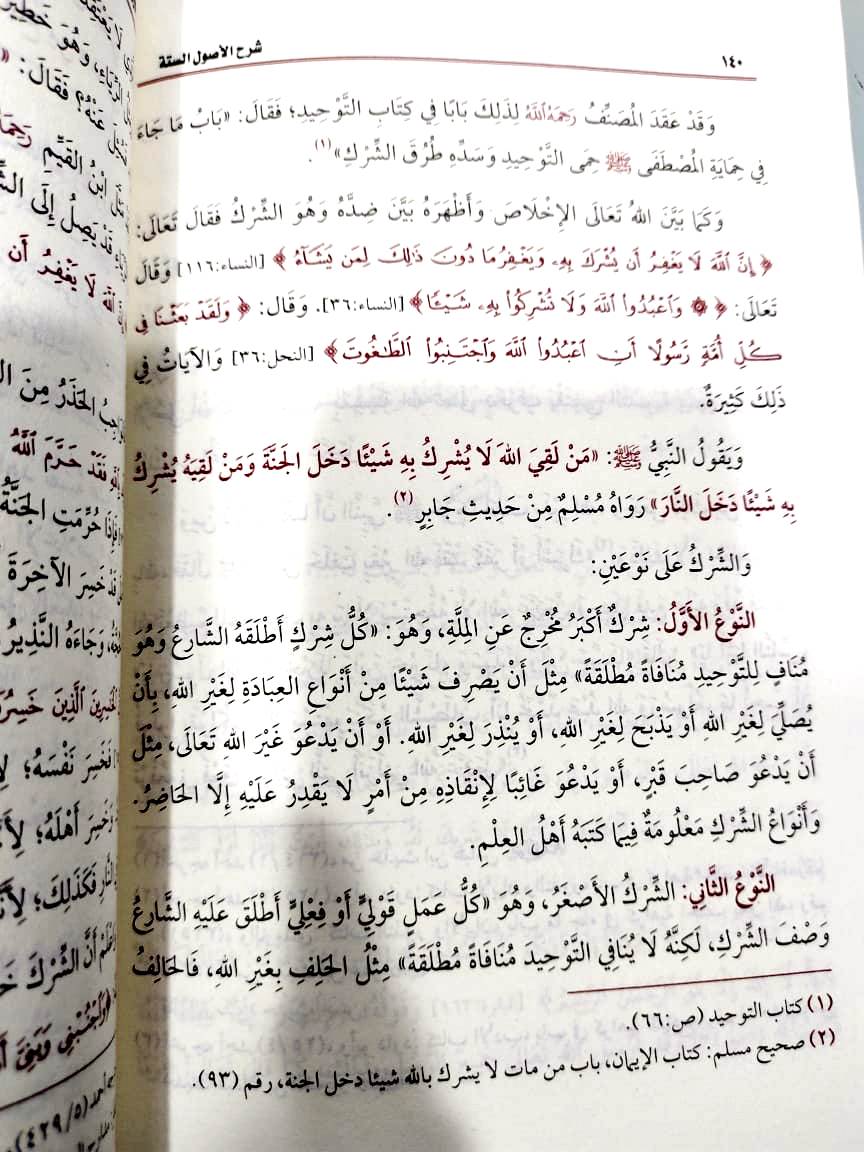 ١٤٠
شرح الأصول الستة
وَقَدْ عَقَدَ المُصَنِّفُ رَحِمَهُ اللَّهُ لِذَلِكَ بَابًا فِي كِتَابِ التَّوْحِيدِ؛ فَقَالَ: «بَابُ مَا جَاءَ
فِي حِمَايَةِ المُصْطَفَى ﷺ حِمَى التَّوْحِيدِ وَسَدِّهِ طُرُقَ الشِّرْكِ»(١).
وَكَمَا بَيَّنَ اللهُ تَعَالَى الإِخْلَاصَ وَأَظْهَرَهُ بَيَّنَ ضِدَّهُ وَهُوَ الشِّرْكُ فَقَالَ تَعَالَى:
﴿إِنَّ ٱللَّهَ لَا يَغْفِرُ أَن يُشْرَكَ بِهِۦ وَيَغْفِرُ مَا دُونَ ذَٰلِكَ لِمَن يَشَآءُ﴾ [النساء:١١٦] وَقَالَ
تَعَالَى: ﴿۞ وَٱعْبُدُوا۟ ٱللَّهَ وَلَا تُشْرِكُوا۟ بِهِۦ شَيْـًٔا﴾ [النساء:٣٦]. وَقَال: ﴿وَلَقَدْ بَعَثْنَا فِى
كُلِّ أُمَّةٍ رَّسُولًا أَنِ ٱعْبُدُوا۟ ٱللَّهَ وَٱجْتَنِبُوا۟ ٱلطَّٰغُوتَ﴾ [النحل:٣٦] وَالآيَاتُ فِي
ذَلِكَ كَثِيرَةٌ.
وَيَقُولُ النَّبِيُّ ﷺ: «مَنْ لَقِيَ اللهَ لَا يُشْرِكُ بِهِ شَيْئًا دَخَلَ الجَنَّةَ وَمَنْ لَقِيَهُ يُشْرِكُ
بِهِ شَيْئًا دَخَلَ النَّارَ» رَوَاهُ مُسْلِمٌ مِنْ حَدِيثِ جَابِرٍ(٢).
وَالشِّرْكُ عَلَى نَوْعَيْنِ:
النَّوْعُ الأَوَّلُ: شِرْكٌ أَكْبَرُ مُخْرِجٌ عَنِ المِلَّةِ، وَهُوَ: «كُلُّ شِرْكٍ أَطْلَقَهُ الشَّارِعُ وَهُوَ
مُنَافٍ لِلتَّوْحِيدِ مُنَافَاةً مُطْلَقَةً» مِثْلَ أَنْ يَصْرِفَ شَيْئًا مِنْ أَنْوَاعِ العِبَادَةِ لِغَيْرِ اللهِ، بِأَنْ
يُصَلِّيَ لِغَيْرِ اللهِ أَوْ يَذْبَحَ لِغَيْرِ اللهِ، أَوْ يُنْذِرَ لِغَيْرِ اللهِ. أَوْ أَنْ يَدْعُوَ غَيْرَ اللهِ تَعَالَى، مِثْلَ
أَنْ يَدْعُوَ صَاحِبَ قَبْرٍ، أَوْ يَدْعُوَ غَائِبًا لِإِنْقَاذِهِ مِنْ أَمْرٍ لَا يَقْدِرُ عَلَيْهِ إِلَّا الحَاضِرُ.
وَأَنْوَاعُ الشِّرْكِ مَعْلُومَةٌ فِيمَا كَتَبَهُ أَهْلُ العِلْمِ.
النَّوْعُ الثَّانِي: الشِّرْكُ الأَصْغَرُ، وَهُوَ «كُلُّ عَمَلٍ قَوْلِيٍّ أَوْ فِعْلِيٍّ أَطْلَقَ عَلَيْهِ الشَّارِعُ
وَصْفَ الشِّرْكِ، لَكِنَّهُ لَا يُنَافِي التَّوْحِيدَ مُنَافَاةً مُطْلَقَةً» مِثْلُ الحَلِفِ بِغَيْرِ اللهِ، فَالحَالِفُ
(١) كتاب التوحيد (ص:٦٦).
(٢) صحيح مسلم: كتاب الإيمان، باب من مات لا يشرك بالله شيئا دخل الجنة، رقم (٩٣).